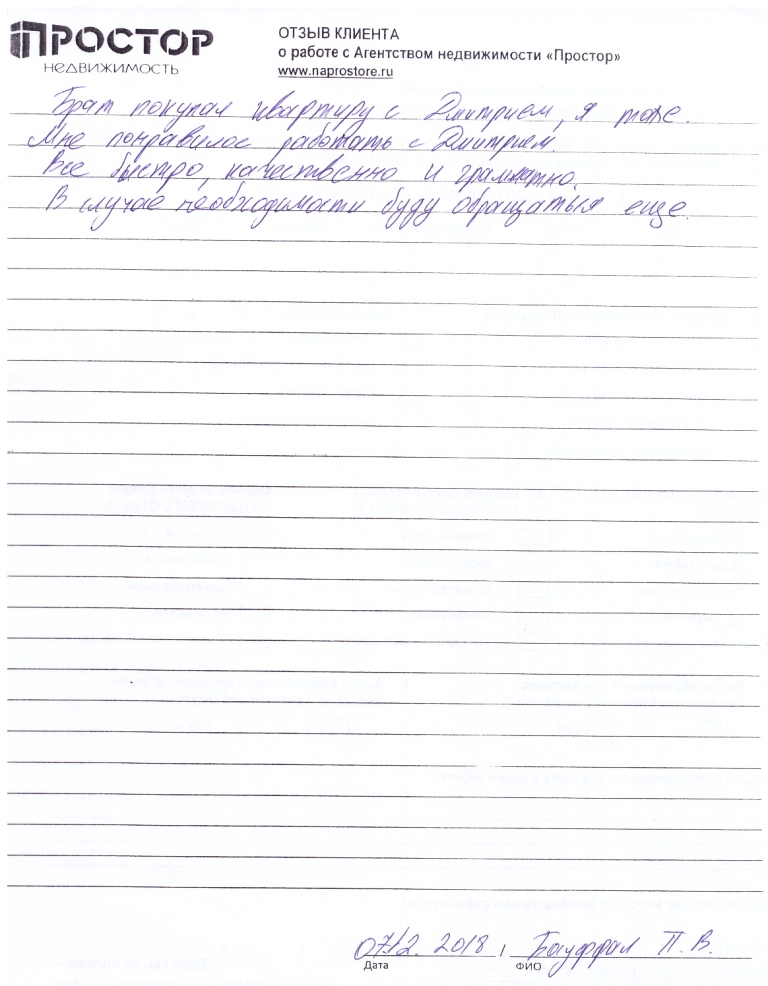 ПРОСТОР
НЕДВИЖИМОСТЬ
ОТЗЫВ КЛИЕНТА
о работе с Агентством недвижимости «Простор»
www.naprostore.ru
Брат покупал квартиру с Дмитрием, я тоже.
Мне понравилос работать с Дмитрием.
Все быстро, качественно и грамматно.
В случае необходимости буду обращаться еще.
07.12.2018 / Бауфрал П.В.
Дата ФИО